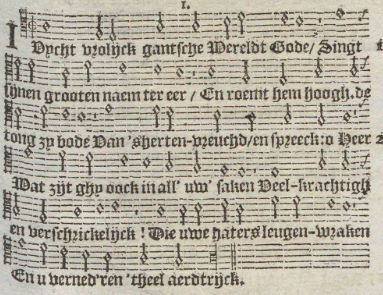 1.
IUycht vrolijck gantsche Wereldt Gode/ Singt
sijnen grooten naem ter eer / En roemt hem hoogh. de
tong zy bode Van 'sherten-vreuchd/en spreeck: o Heer
Wat zijt ghy oock in all' uw' saken Veel-krachtigh
en verschrickelijck ! Die uwe haters leugen-wraken
En u verned'ren 'theel aerdtrijck.